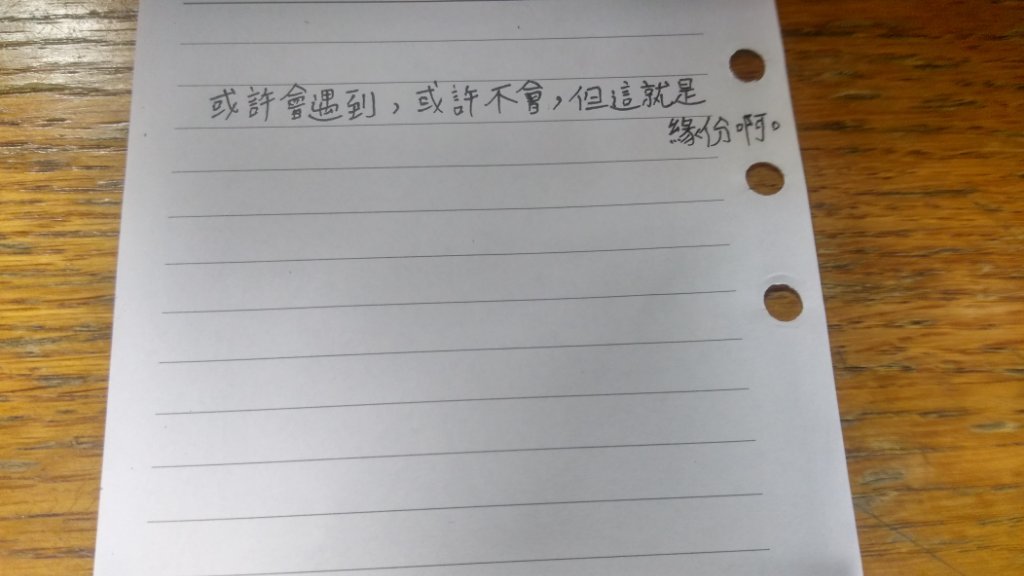 或許會遇到，或許不會，但這就是
緣份啊。